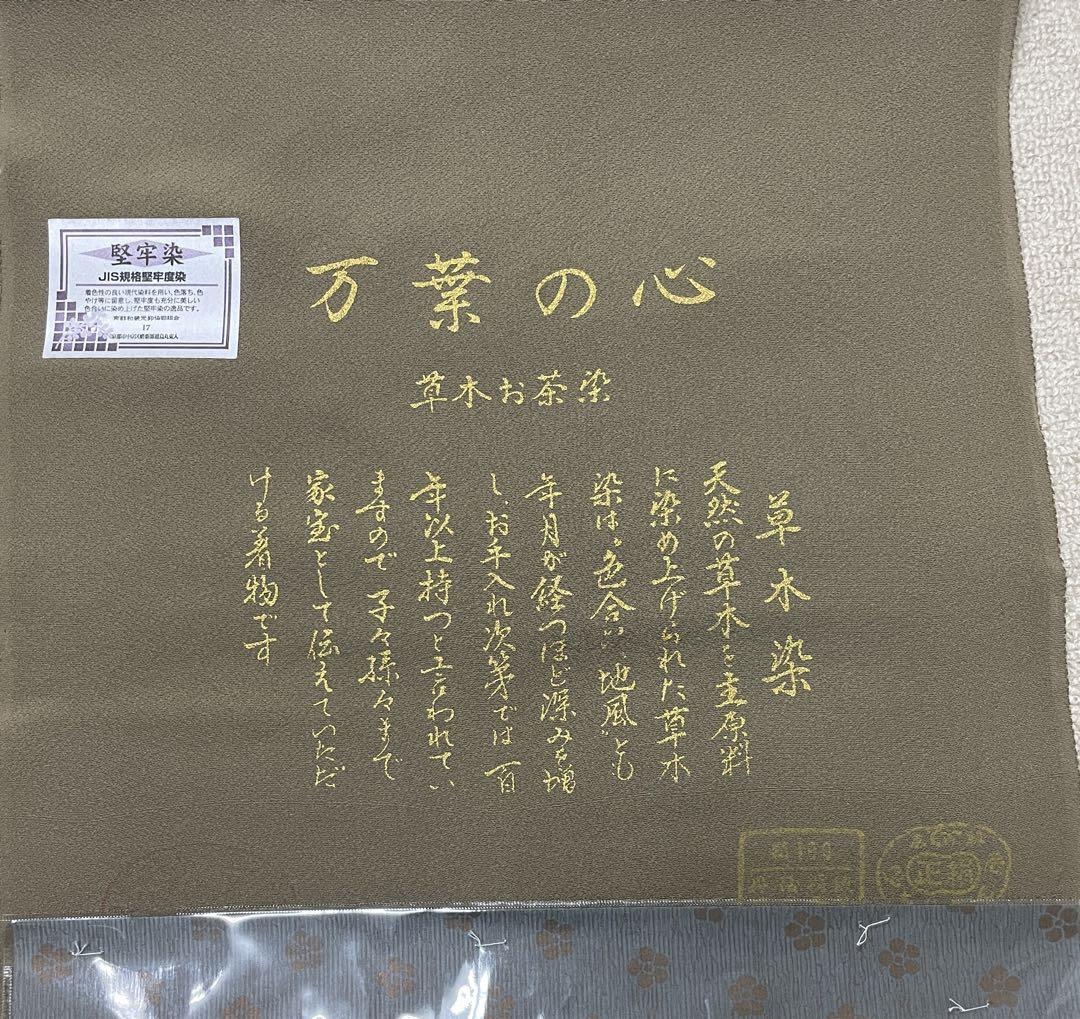 堅牢染
JIS規格堅牢度染
着色性の良い現代染料を用い、色落ち、色
やけ等に留意し、堅牢度も充分に美しい
色合いに染め上げた堅牢染の逸品です。
17
万葉の心
草木お茶染
草木染
天然の草木を主原料
に染め上げられた草木
染は〝色合い〟地風〟とも
年月が経つほど深みを増
し、お手入れ次第では百
年以上持つと言われてい
ますので子々孫々まで
家宝として伝えていただ
ける着物です
正絹